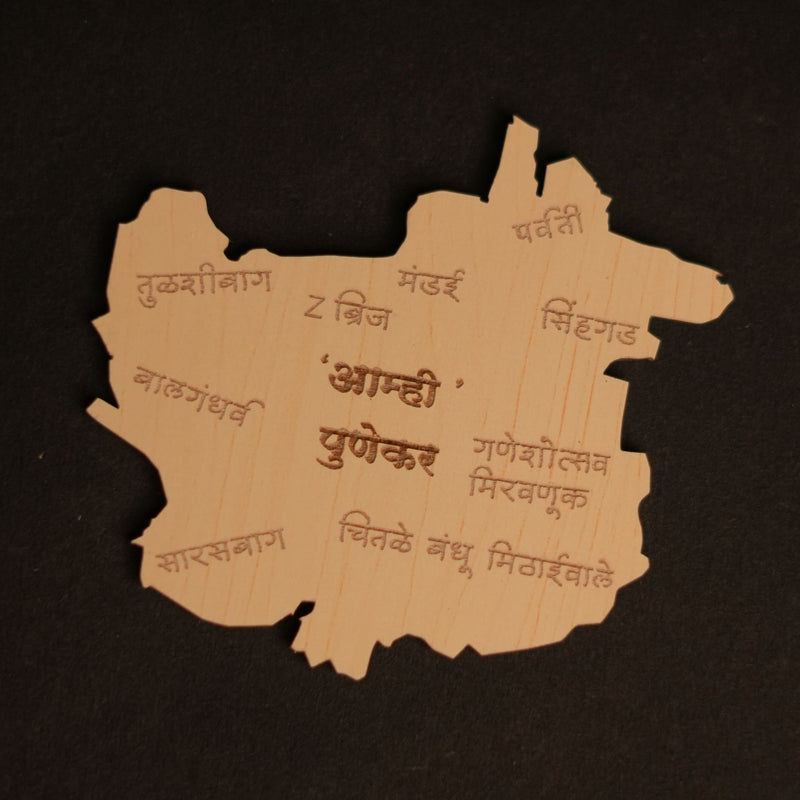 पर्वती
तुळशीबाग
मंडई
Z ब्रिज
सिंहगड
'आम्ही '
बालगंधर्व
पुणेकर
गणेशोत्सव
मिरवणूक
सारसबाग
चितळे बंधू मिठाईवाले